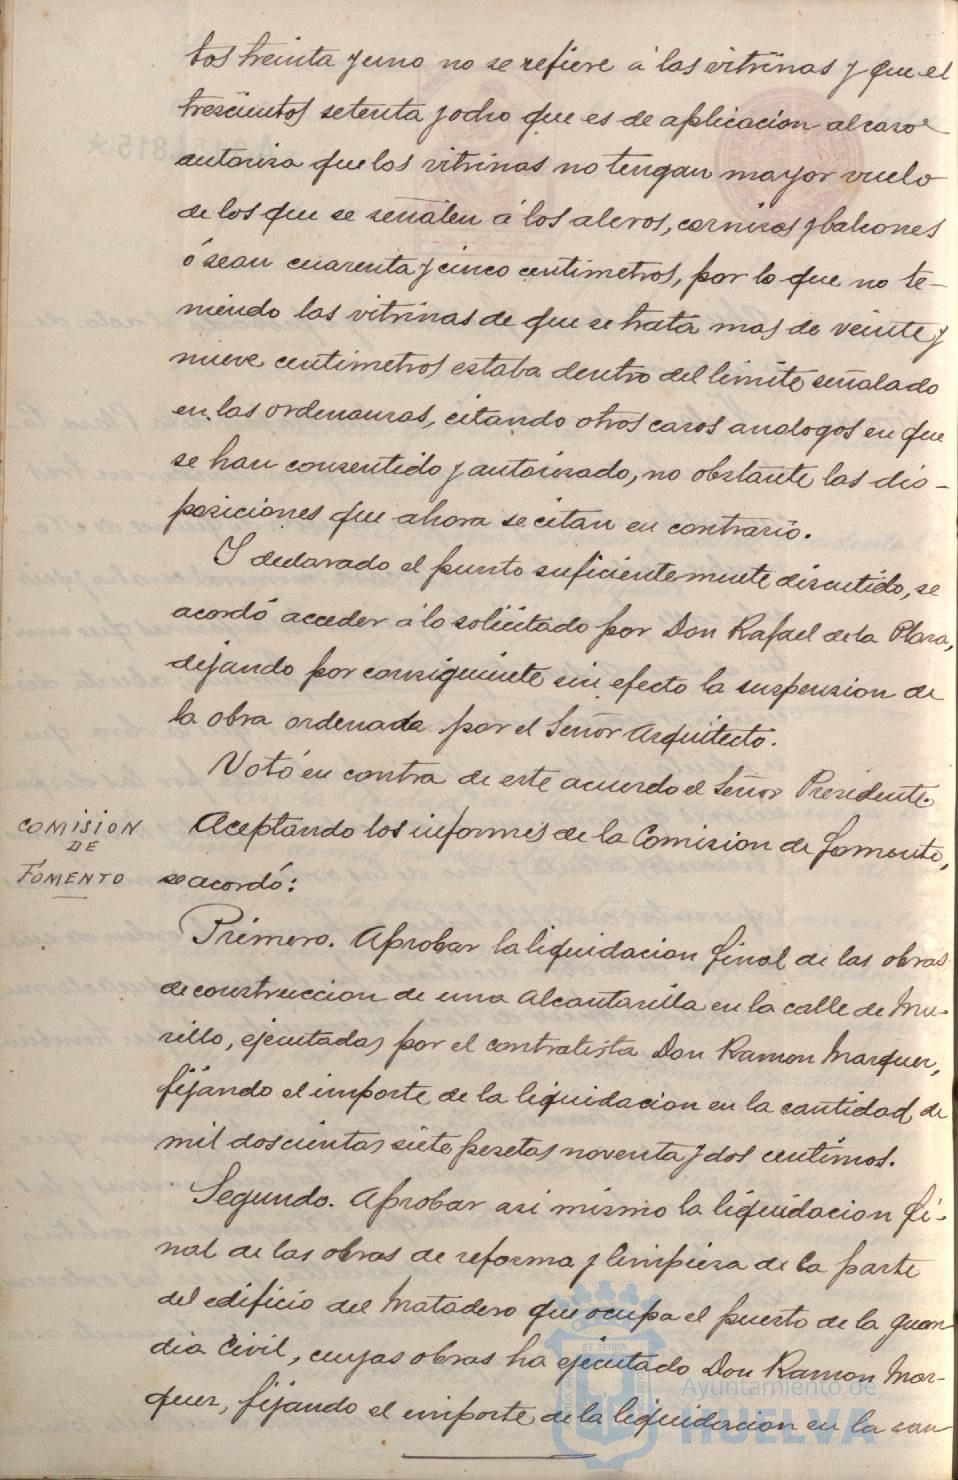 tos treinta y uno no se refiere á las vitrinas y que el
trescientos setenta y ocho que es de aplicacion al caso
autoriza que las vitrinas no tengan mayor vuelo
de los que se señalen á los aleros, cornisas y balcones
ó sean cuarenta y cinco centimetros, por lo que no te-
niendo las vitrinas de que se trata mas de veinte y
nueve centimetros estaba dentro del limite señalado
en las ordenanzas, citando otros casos analogos en que
se han consentido y autorizado, no obstante las dis-
posiciones que ahora se citan en contrario.
Y declarado el punto suficientemente discutido, se
acordó acceder á lo solicitado por Don Rafael de la Plaza,
dejando por consiguiente sin efecto la suspension de
la obra ordenada por el Señor Arquitecto.
Votó en contra de este acuerdo el Señor Presidente.
COMISION
DE
FOMENTO
Aceptando los informes de la Comision de fomento,
se acordó:
Primero. Aprobar la liquidacion final de las obras
de construccion de una alcantarilla en la calle de Mu-
rillo, ejecutadas por el contratista Don Ramon Marquez,
fijando el importe de la liquidacion en la cantidad de
mil doscientas siete pesetas noventa y dos centimos.
Segundo. Aprobar asi mismo la liquidacion fi-
nal de las obras de reforma y limpieza de la parte
del edificio del Matadero que ocupa el puesto de la guar-
dia Civil, cuyas obras ha ejecutado Don Ramon Mar-
quez, fijando el importe de la liquidacion en la can-
Ayuntamiento de
HUELVA